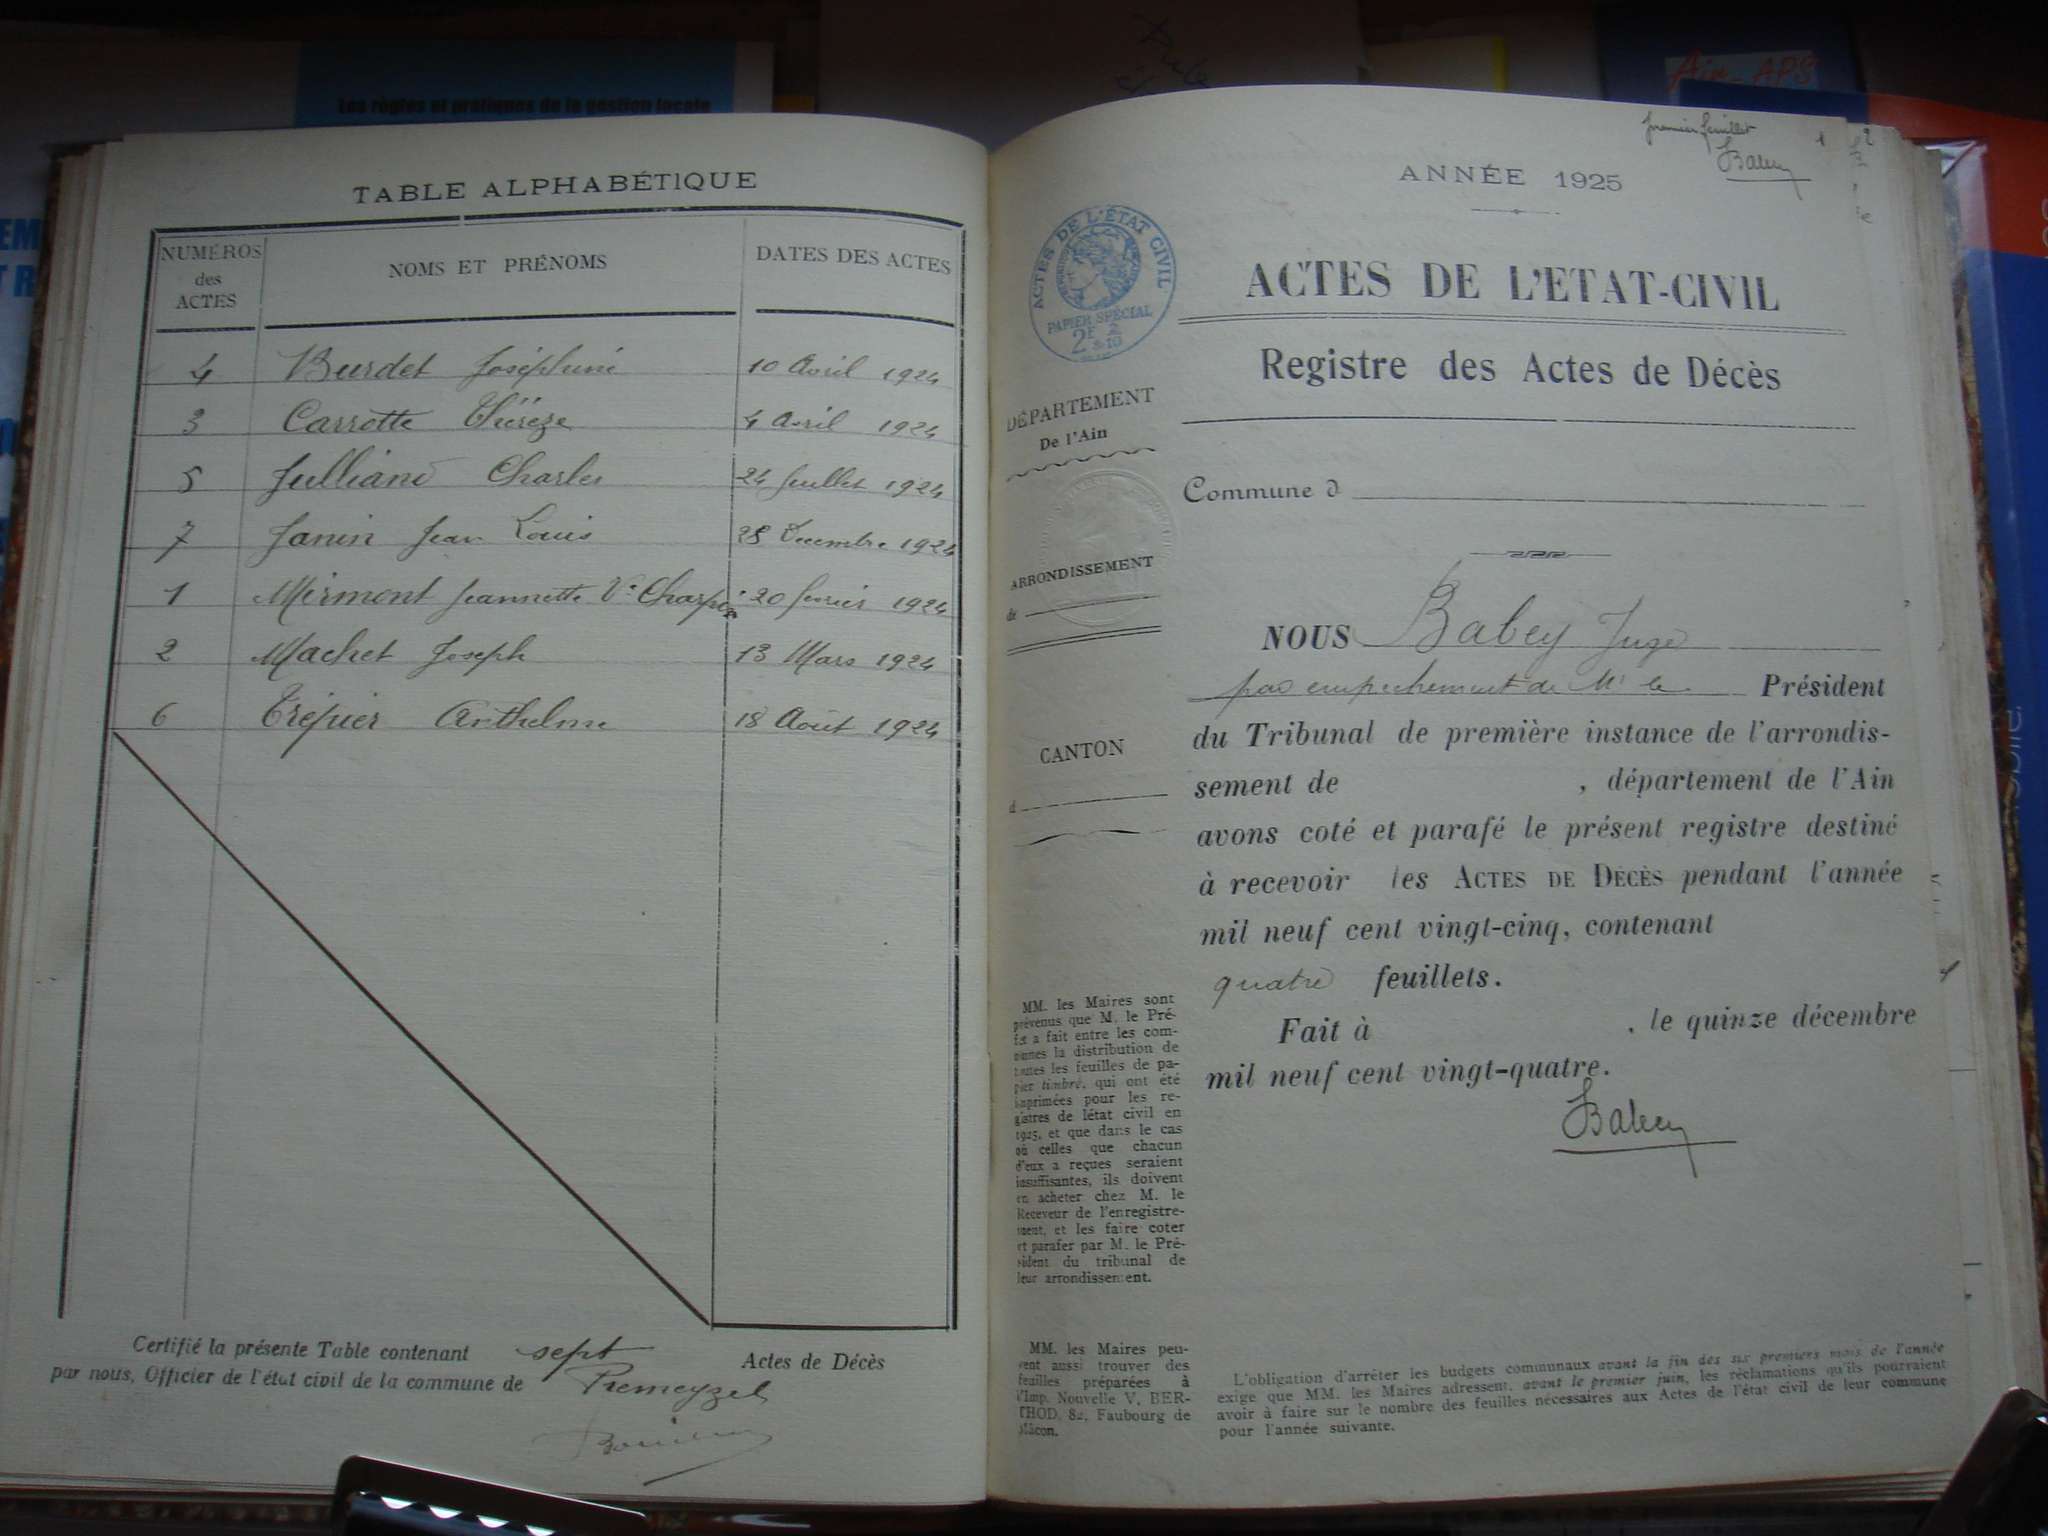 Les règles et pratiques de la gestion locale
Ain-APS
TABLE ALPHABÉTIQUE
NUMÉROS des ACTES NOMS ET PRÉNOMS DATES DES ACTES
4 Burdet Joséphine 10 Avril 1924
3 Carrotte Thérèze 4 Avril 1924
5 Julliand Charles 24 Juillet 1924
7 Janin Jean Louis 28 Décembre 1924
1 Mermont Jeannette Vve Charpin 20 février 1924
2 Machet Joseph 13 Mars 1924
6 Trépier Anthelme 18 Août 1924
Certifié la présente Table contenant sept
par nous, Officier de l'état civil de la commune de Premeyzel
Actes de Décès
premier feuillet
Babey
1
2
ANNÉE 1925
ACTES DE L'ÉTAT CIVIL
PAPIER SPÉCIAL
ACTES DE L'ETAT-CIVIL
Registre des Actes de Décès
DÉPARTEMENT
De l'Ain
Commune d
ARRONDISSEMENT
de
CANTON
d
NOUS Babey Juge
par empêchement de Mr le Président
du Tribunal de première instance de l'arrondis-
sement de , département de l'Ain
avons coté et parafé le présent registre destiné
à recevoir les ACTES DE DÉCÈS pendant l'année
mil neuf cent vingt-cinq, contenant
quatre feuillets.
Fait à , le quinze décembre
mil neuf cent vingt-quatre.
Babey
MM. les Maires sont
prévenus que M. le Pré-
fet a fait entre les com-
munes la distribution de
toutes les feuilles de pa-
pier timbré, qui ont été
imprimées pour les re-
gistres de létat civil en
1925, et que dans le cas
où celles que chacun
d'eux a reçues seraient
insuffisantes, ils doivent
en acheter chez M. le
Receveur de l'enregistre-
ment, et les faire coter
et parafer par M. le Pré-
sident du tribunal de
leur arrondissement.
MM. les Maires peu-
vent aussi trouver des
feuilles préparées à
l'Imp. Nouvelle V. BER-
THOD, 82, Faubourg de
Mâcon.
L'obligation d'arrêter les budgets communaux avant la fin des six premiers mois de l'année
exige que MM. les Maires adressent, avant le premier juin, les réclamations qu'ils pourraient
avoir à faire sur le nombre des feuilles nécessaires aux Actes de l'état civil de leur commune
pour l'année suivante.